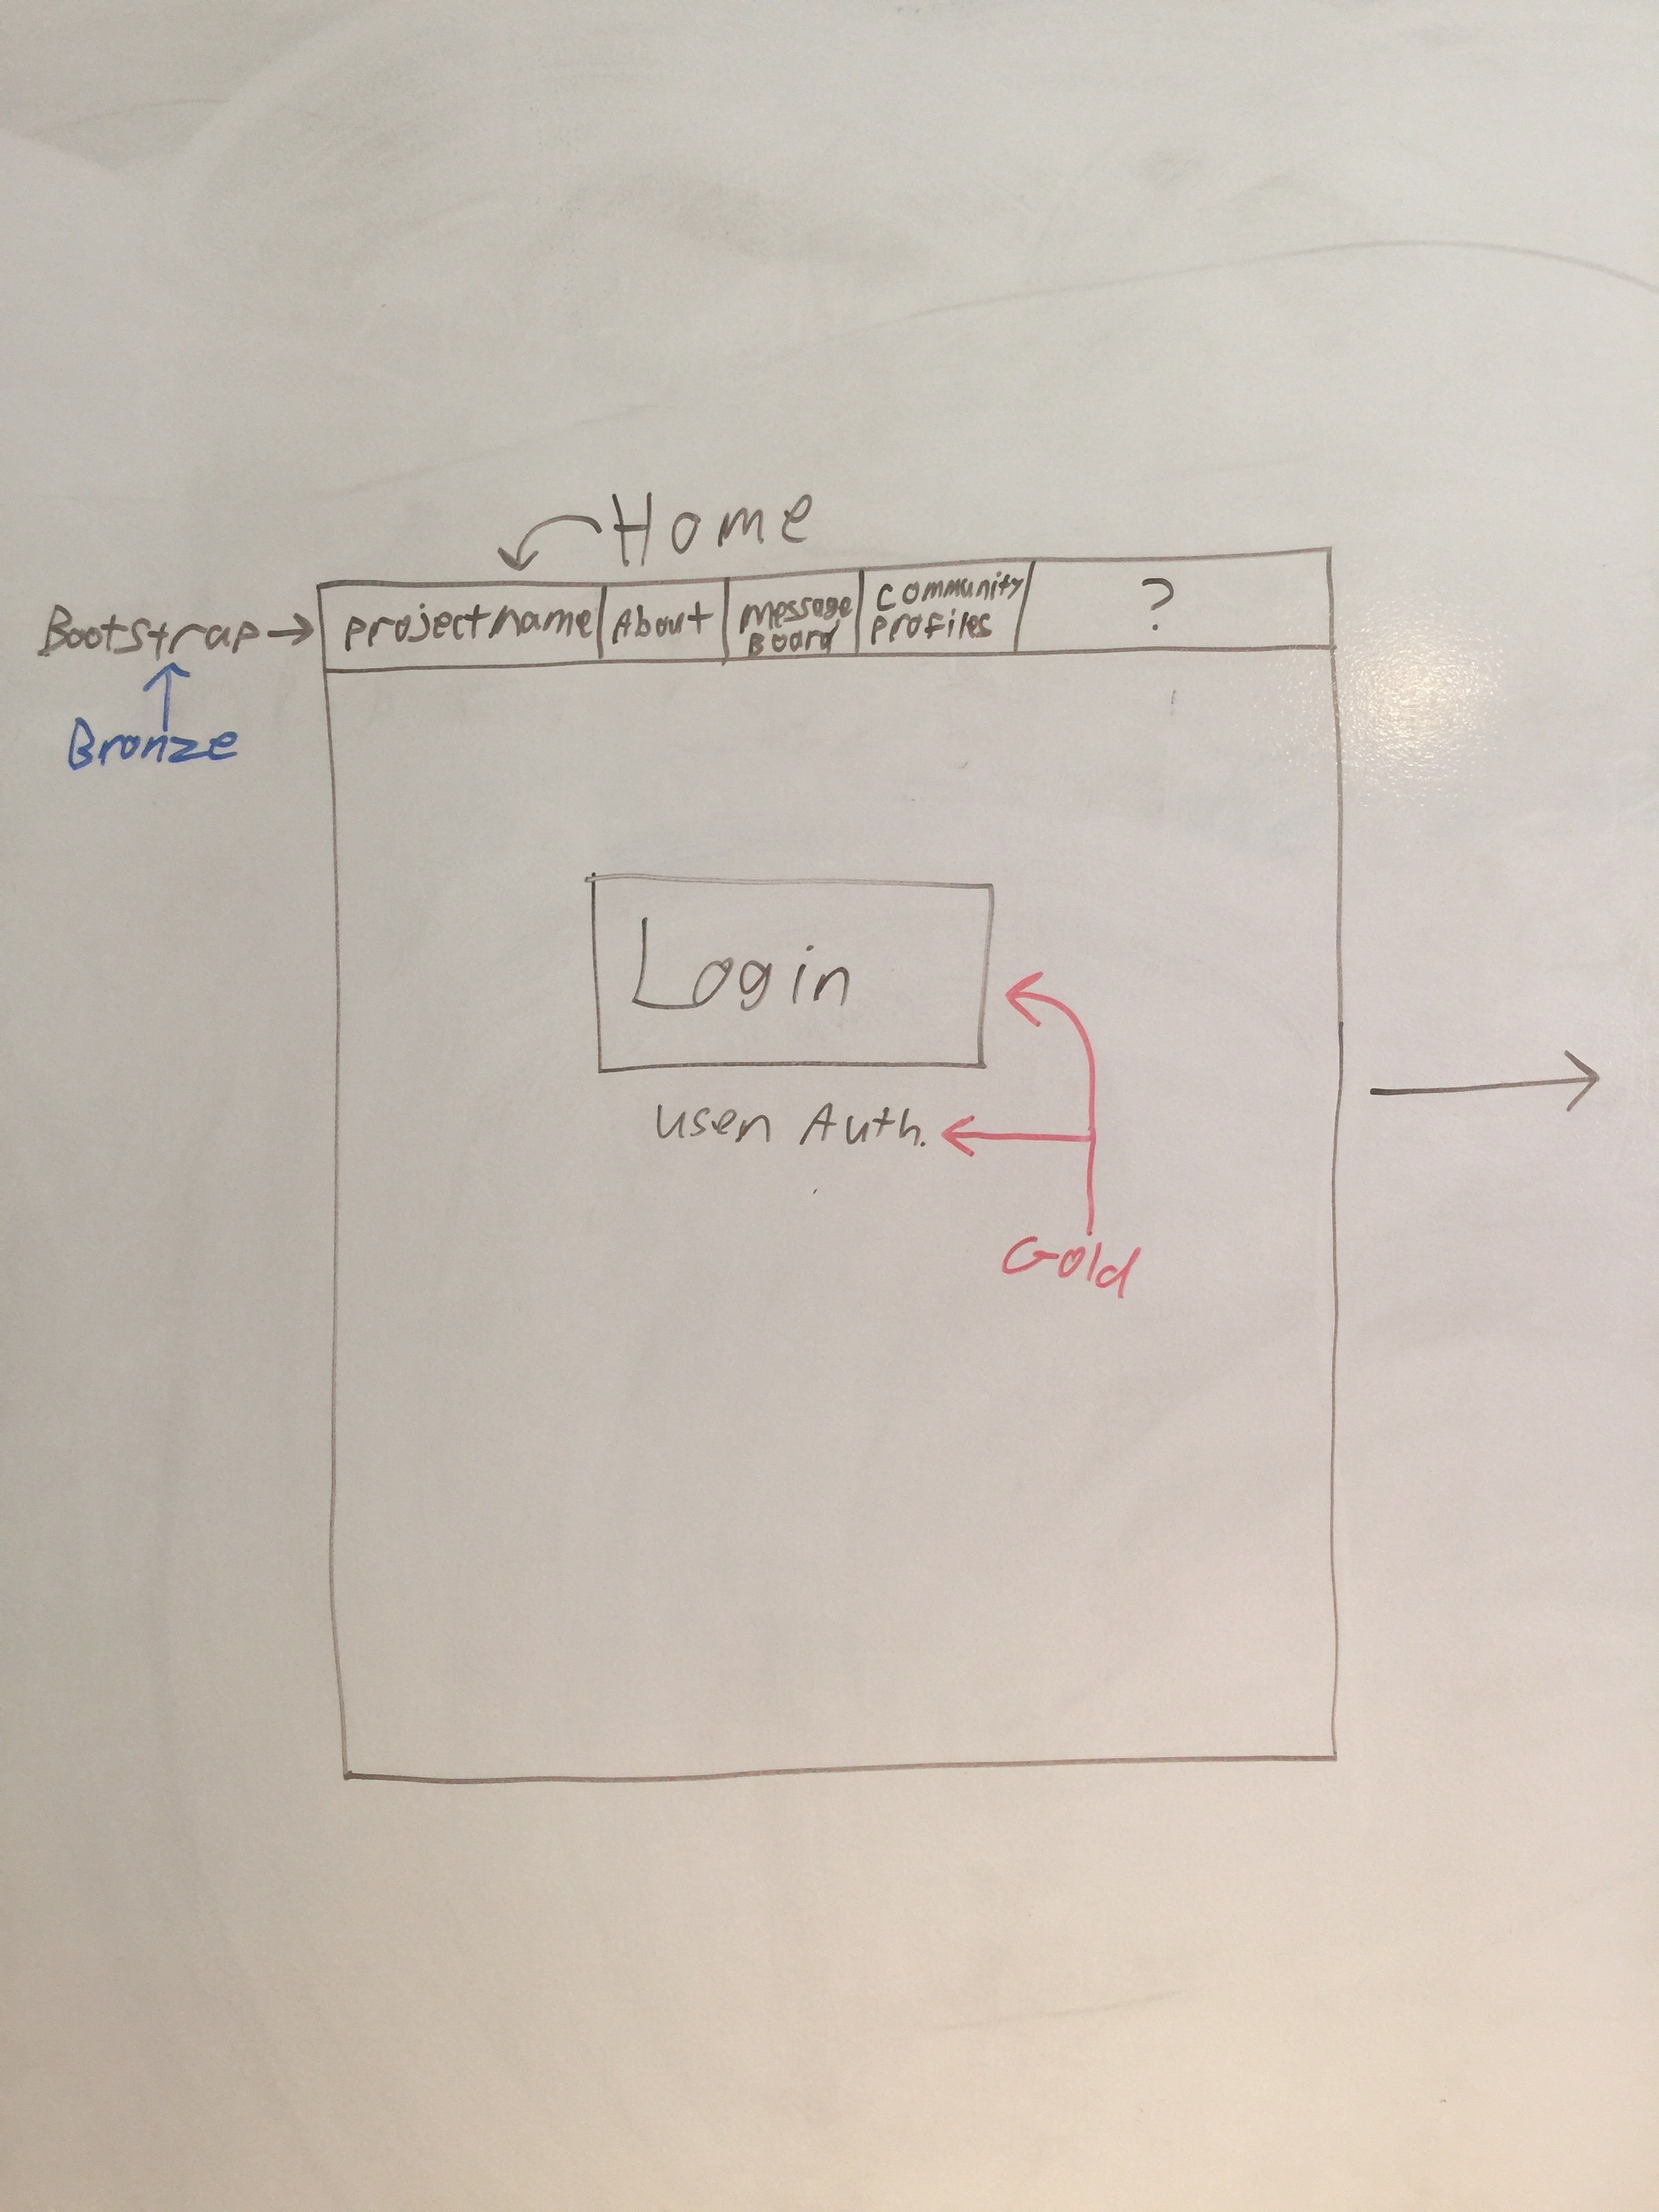 Home
Bootstrap
projectname
About
message
Board
community
profiles
?
Bronze
Login
user Auth.
Gold